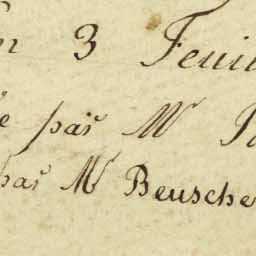 en 3 Feuil
e par Mr
par Mr Beusche